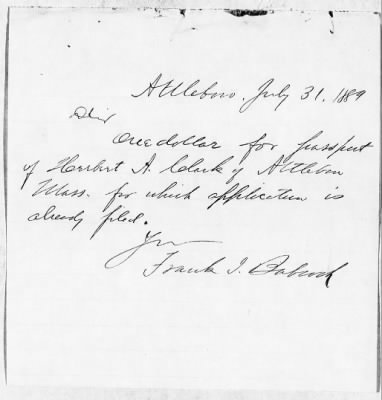 Attleboro. July 31. 1889
Sir
One dollar for passport
of Herbert A. Clark of Attleboro
Mass. for which application is
already filed.
Yrs
Frank I. Babcock